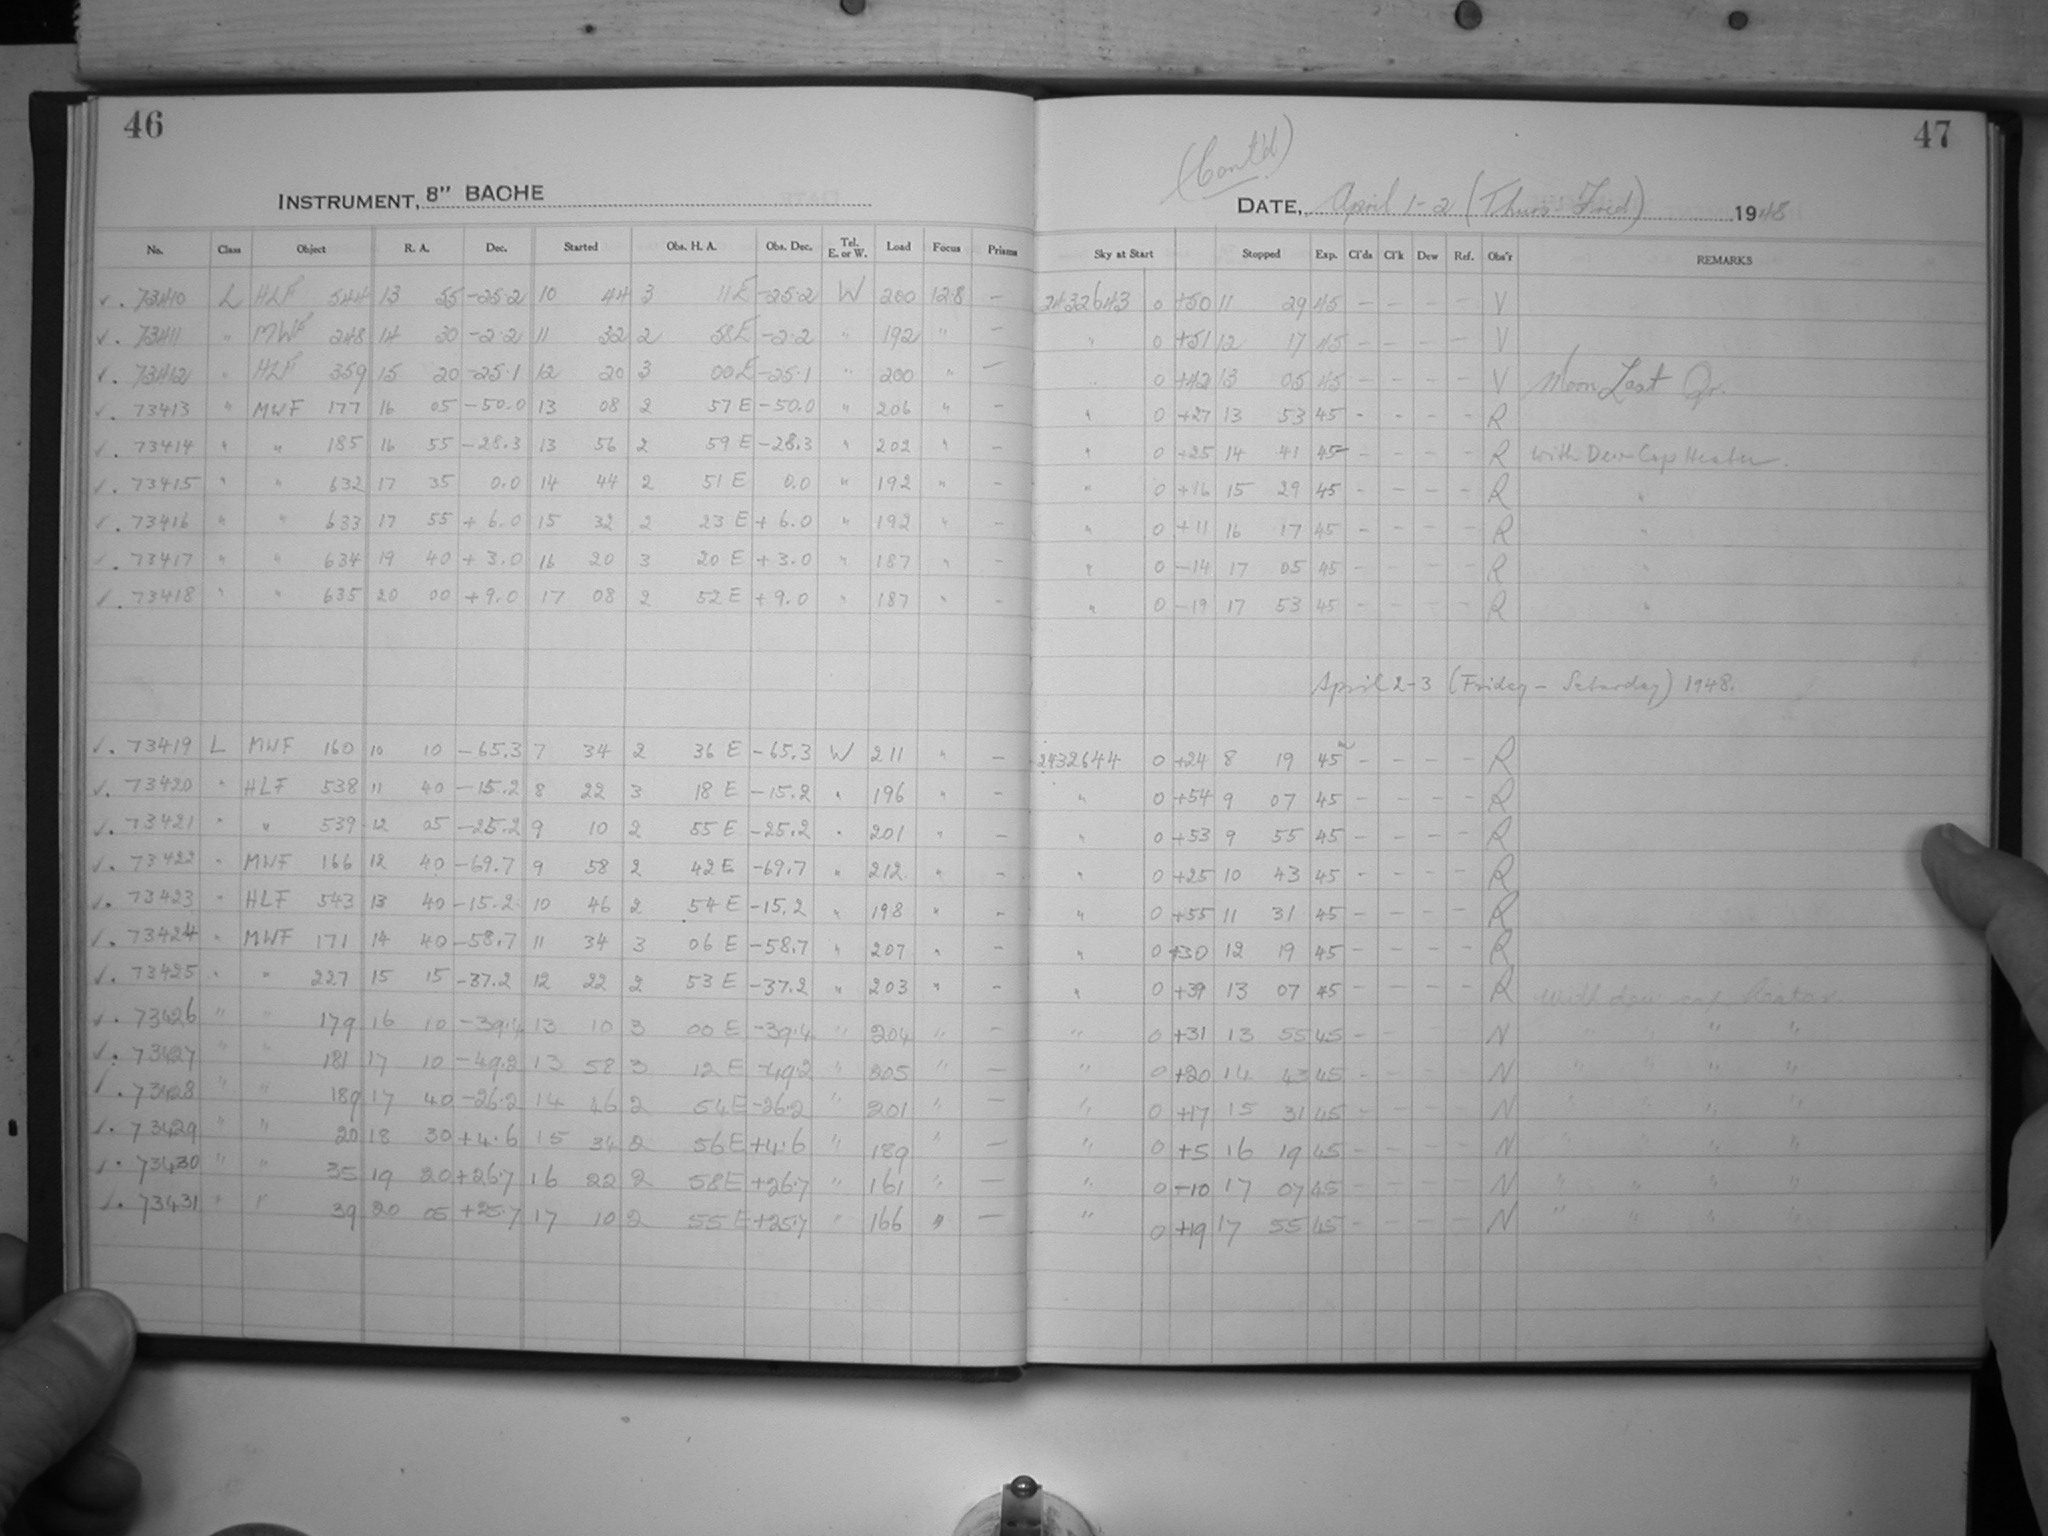 46
INSTRUMENT, 8" BACHE
No. Class Object R. A. Dec. Started Obs. H. A. Obs. Dec. Tel. E. or W. Load Focus Prisms
✓. 73410 L HLF 544 13 55 -25.2 10 44 3 11E -25.2 W 200 12.8 —
✓. 73411 " MWF 248 14 30 -2.2 11 32 2 58E -2.2 " 192 " —
✓. 73412 " HLF 359 15 20 -25.1 12 20 3 00E -25.1 " 200 " —
✓. 73413 " MWF 177 16 05 -50.0 13 08 2 57 E -50.0 " 206 " —
✓. 73414 " " 185 16 55 -28.3 13 56 2 59 E -28.3 " 202 " —
✓. 73415 " " 632 17 35 0.0 14 44 2 51 E 0.0 " 192 " —
✓. 73416 " " 633 17 55 + 6.0 15 32 2 23 E + 6.0 " 192 " —
✓. 73417 " " 634 19 40 + 3.0 16 20 3 20 E + 3.0 " 187 " —
✓. 73418 " " 635 20 00 +9.0 17 08 2 52 E + 9.0 " 187 " —
✓. 73419 L MWF 160 10 10 -65.3 7 34 2 36 E -65.3 W 211 " —
✓. 73420 " HLF 538 11 40 -15.2 8 22 3 18 E -15.2 " 196 " —
✓. 73421 " " 539 12 05 -25.2 9 10 2 55 E -25.2 " 201 " —
✓. 73422 " MWF 166 12 40 -69.7 9 58 2 42 E -69.7 " 212 " —
✓. 73423 " HLF 543 13 40 -15.2 10 46 2 54 E -15.2 " 198 " —
✓. 73424 " MWF 171 14 40 -58.7 11 34 3 06 E -58.7 " 207 " —
✓. 73425 " " 227 15 15 -37.2 12 22 2 53 E -37.2 " 203 " —
✓. 73426 " " 179 16 10 -39.4 13 10 3 00 E -39.4 " 204 " —
✓. 73427 " " 181 17 10 -49.2 13 58 3 12 E -49.2 " 205 " —
✓. 73428 " " 189 17 40 -26.2 14 46 2 54E -26.2 " 201 " —
✓. 73429 " " 20 18 30 +4.6 15 34 2 56E +4.6 " 189 " —
✓. 73430 " " 35 19 20 +26.7 16 22 2 58E +26.7 " 161 " —
✓. 73431 " " 39 20 05 +25.7 17 10 2 55 E +25.7 " 166 " —
47
(Cont'd)
DATE, April 1-2 (Thurs-Fred) 1948
Sky at Start Stopped Exp. Cl'ds Cl'k Dew Ref. Obs'r REMARKS
2432643 0 +50 11 29 45 — — — — V
" 0 +51 12 17 45 — — — — V
" 0 +42 13 05 45 — — — — V Moon Last Qr.
" 0 +27 13 53 45 - - - - R
" 0 +25 14 41 45 - - - - R with Dew Cap Heater.
" 0 +16 15 29 45 - - - - R "
" 0 +11 16 17 45 - - - - R "
" 0 -14 17 05 45 - - - - R "
" 0 -19 17 53 45 - - - - R "
April 2-3 (Friday - Saturday) 1948.
2432644 0 +24 8 19 45 - - - - R
" 0 +54 9 07 45 - - - - R
" 0 +53 9 55 45 - - - - R
" 0 +25 10 43 45 - - - - R
" 0 +55 11 31 45 - - - - R
" 0 +30 12 19 45 - - - - R
" 0 +39 13 07 45 - - - - R With dew cap heater.
" 0 +31 13 55 45 - - N " " " "
" 0 +20 14 43 45 - - - - N " " " "
" 0 +17 15 31 45 - - - - N " " " "
" 0 +5 16 19 45 - - - - N " " " "
" 0 -10 17 07 45 - - - - N " " " "
" 0 +19 17 55 45 - - - - N " " " "